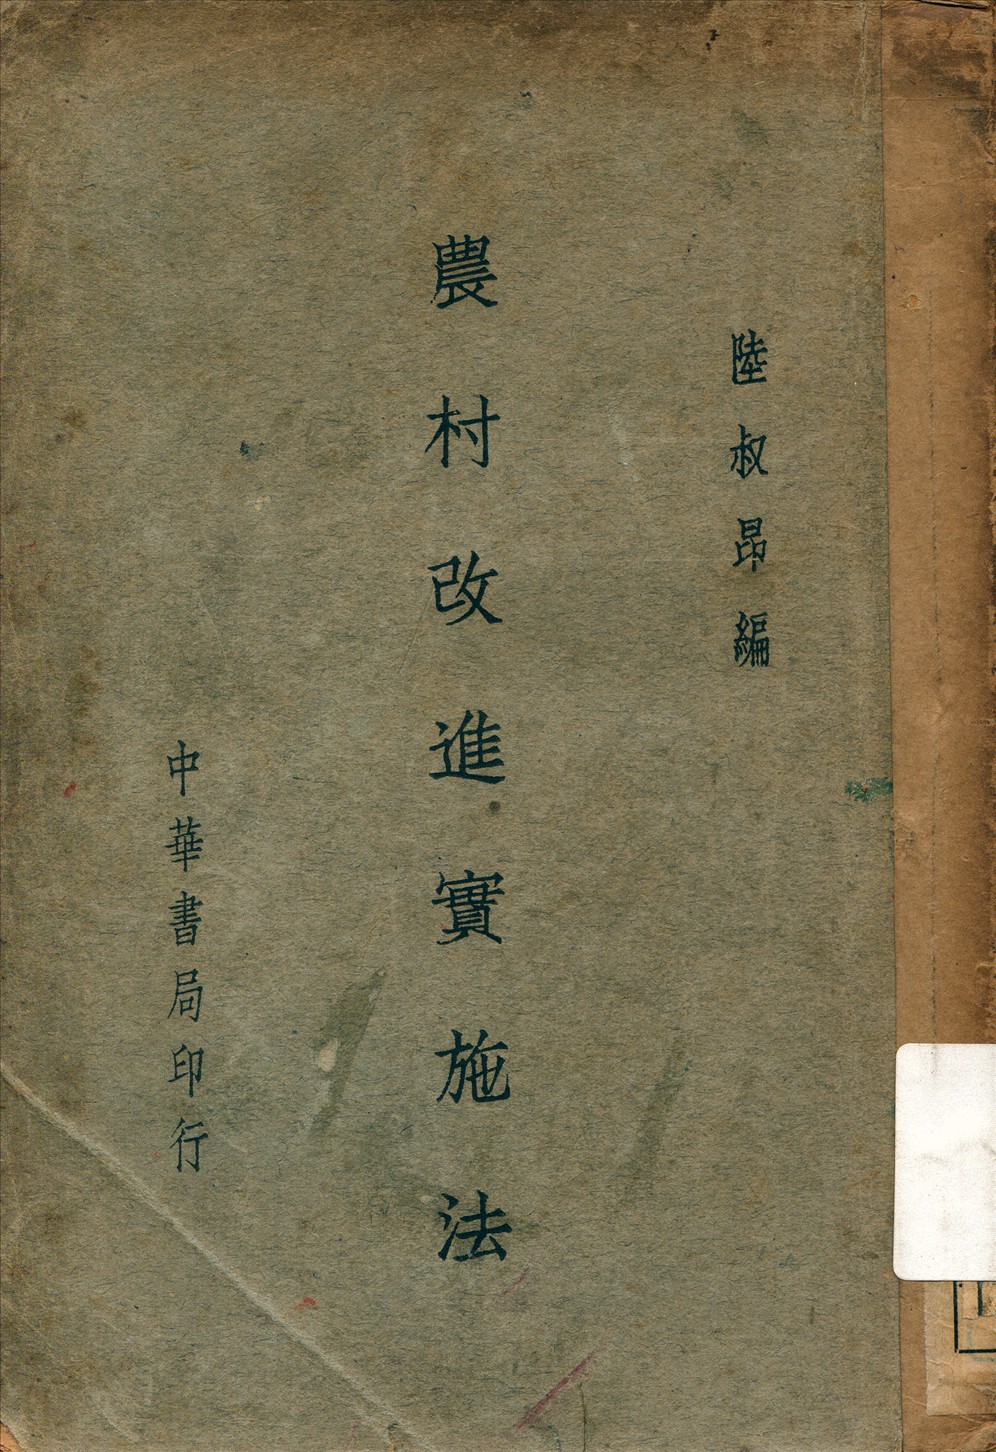 陸叔昂編
農村改進實施法
中華書局印行